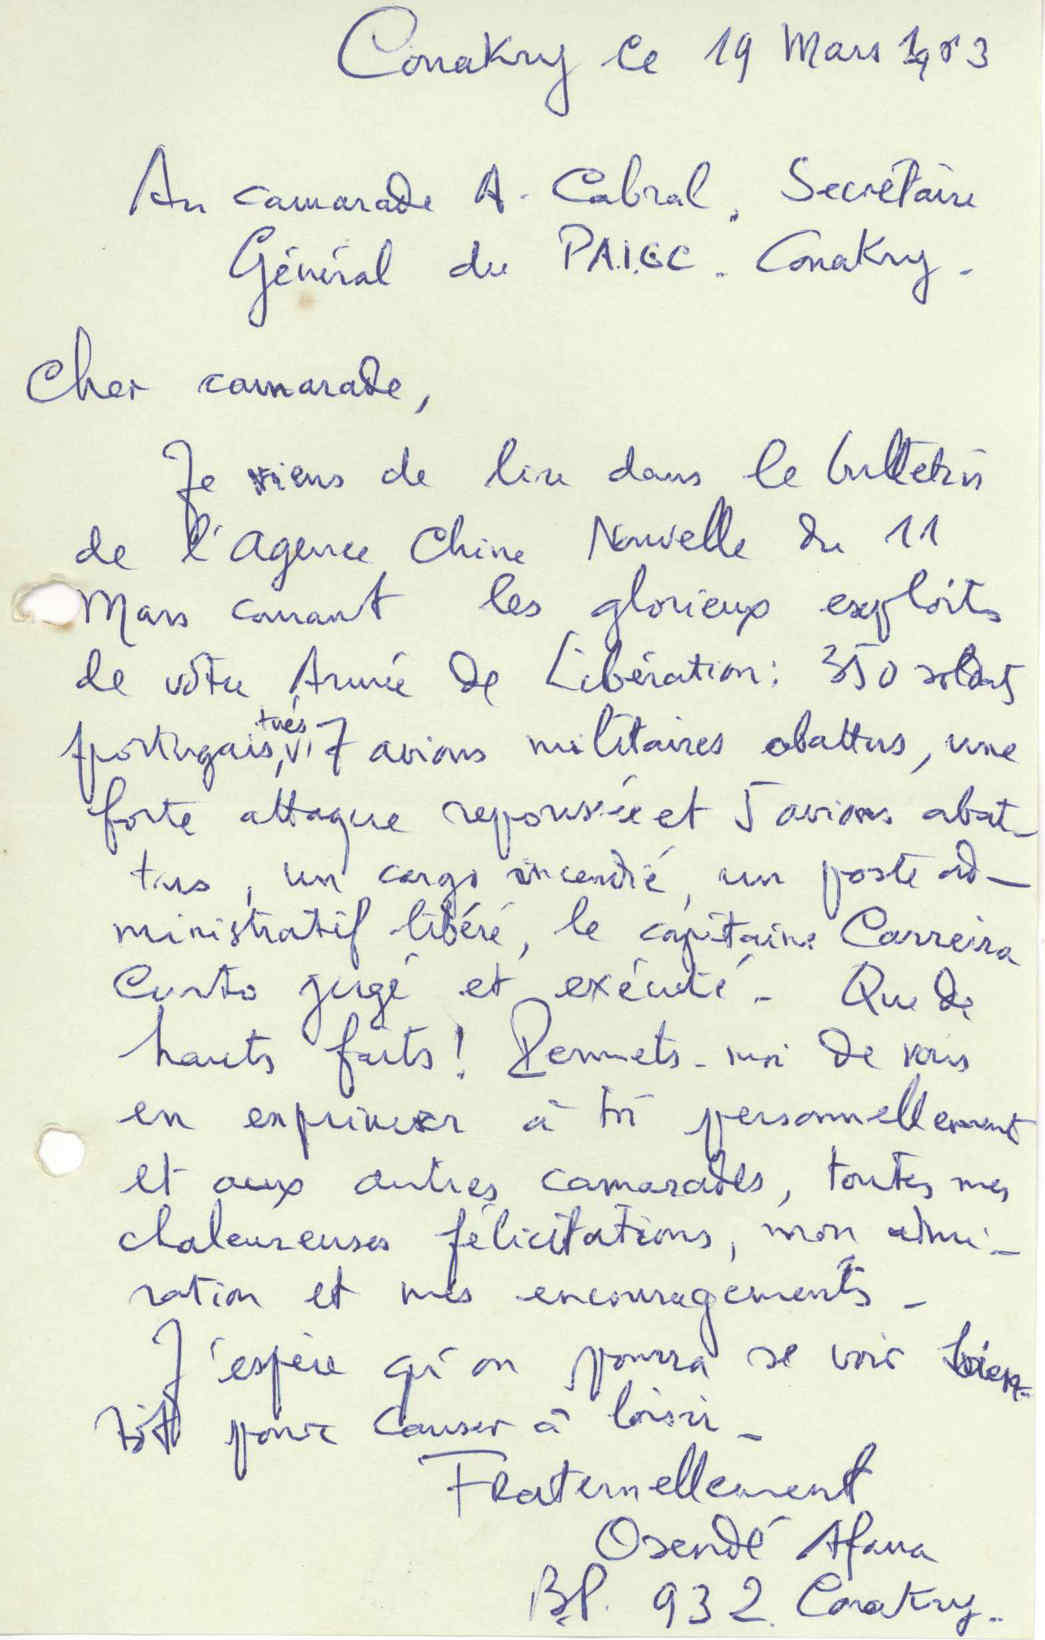 Conakry le 19 Mars 1963
Au camarade A. Cabral, Secrétaire
Général du P.A.I.G.C. Conakry.
Cher camarade,
Je viens de lire dans le bulletin
de l'Agence Chine Nouvelle du 11
Mars courant les glorieux exploits
de votre Armée de Libération : 350 soldats
portugais tués, 7 avions militaires abattus, une
forte attaque repoussée et 5 avions abat-
tus, un cargo incendié, un poste ad-
ministratif libéré, le capitaine Carreira
Curto jugé et exécuté - Que de
hauts faits ! Permets-moi de vous
en exprimer à toi personnellement
et aux autres camarades, toutes mes
chaleureuses félicitations, mon admi-
ration et mes encouragements -
J'espère qu'on pourra se voir bien-
tôt pour causer à loisir -
Fraternellement
Osendé Afana
B.P. 932 Conakry.